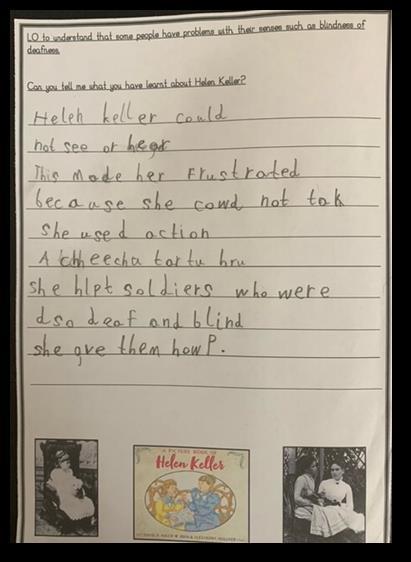 LO to understand that some people have problems with their senses such as blindness of
deafness.
Can you tell me what you have learnt about Helen Keller?
Heleh keller could
not see or hear
This made her frustrated
because she cowd not tak
she used action
A chheecha tortu hru
she hlpt soldiers who were
dso deaf and blind
she gve them howP.
A PICTURE BOOK OF
Helen Keller